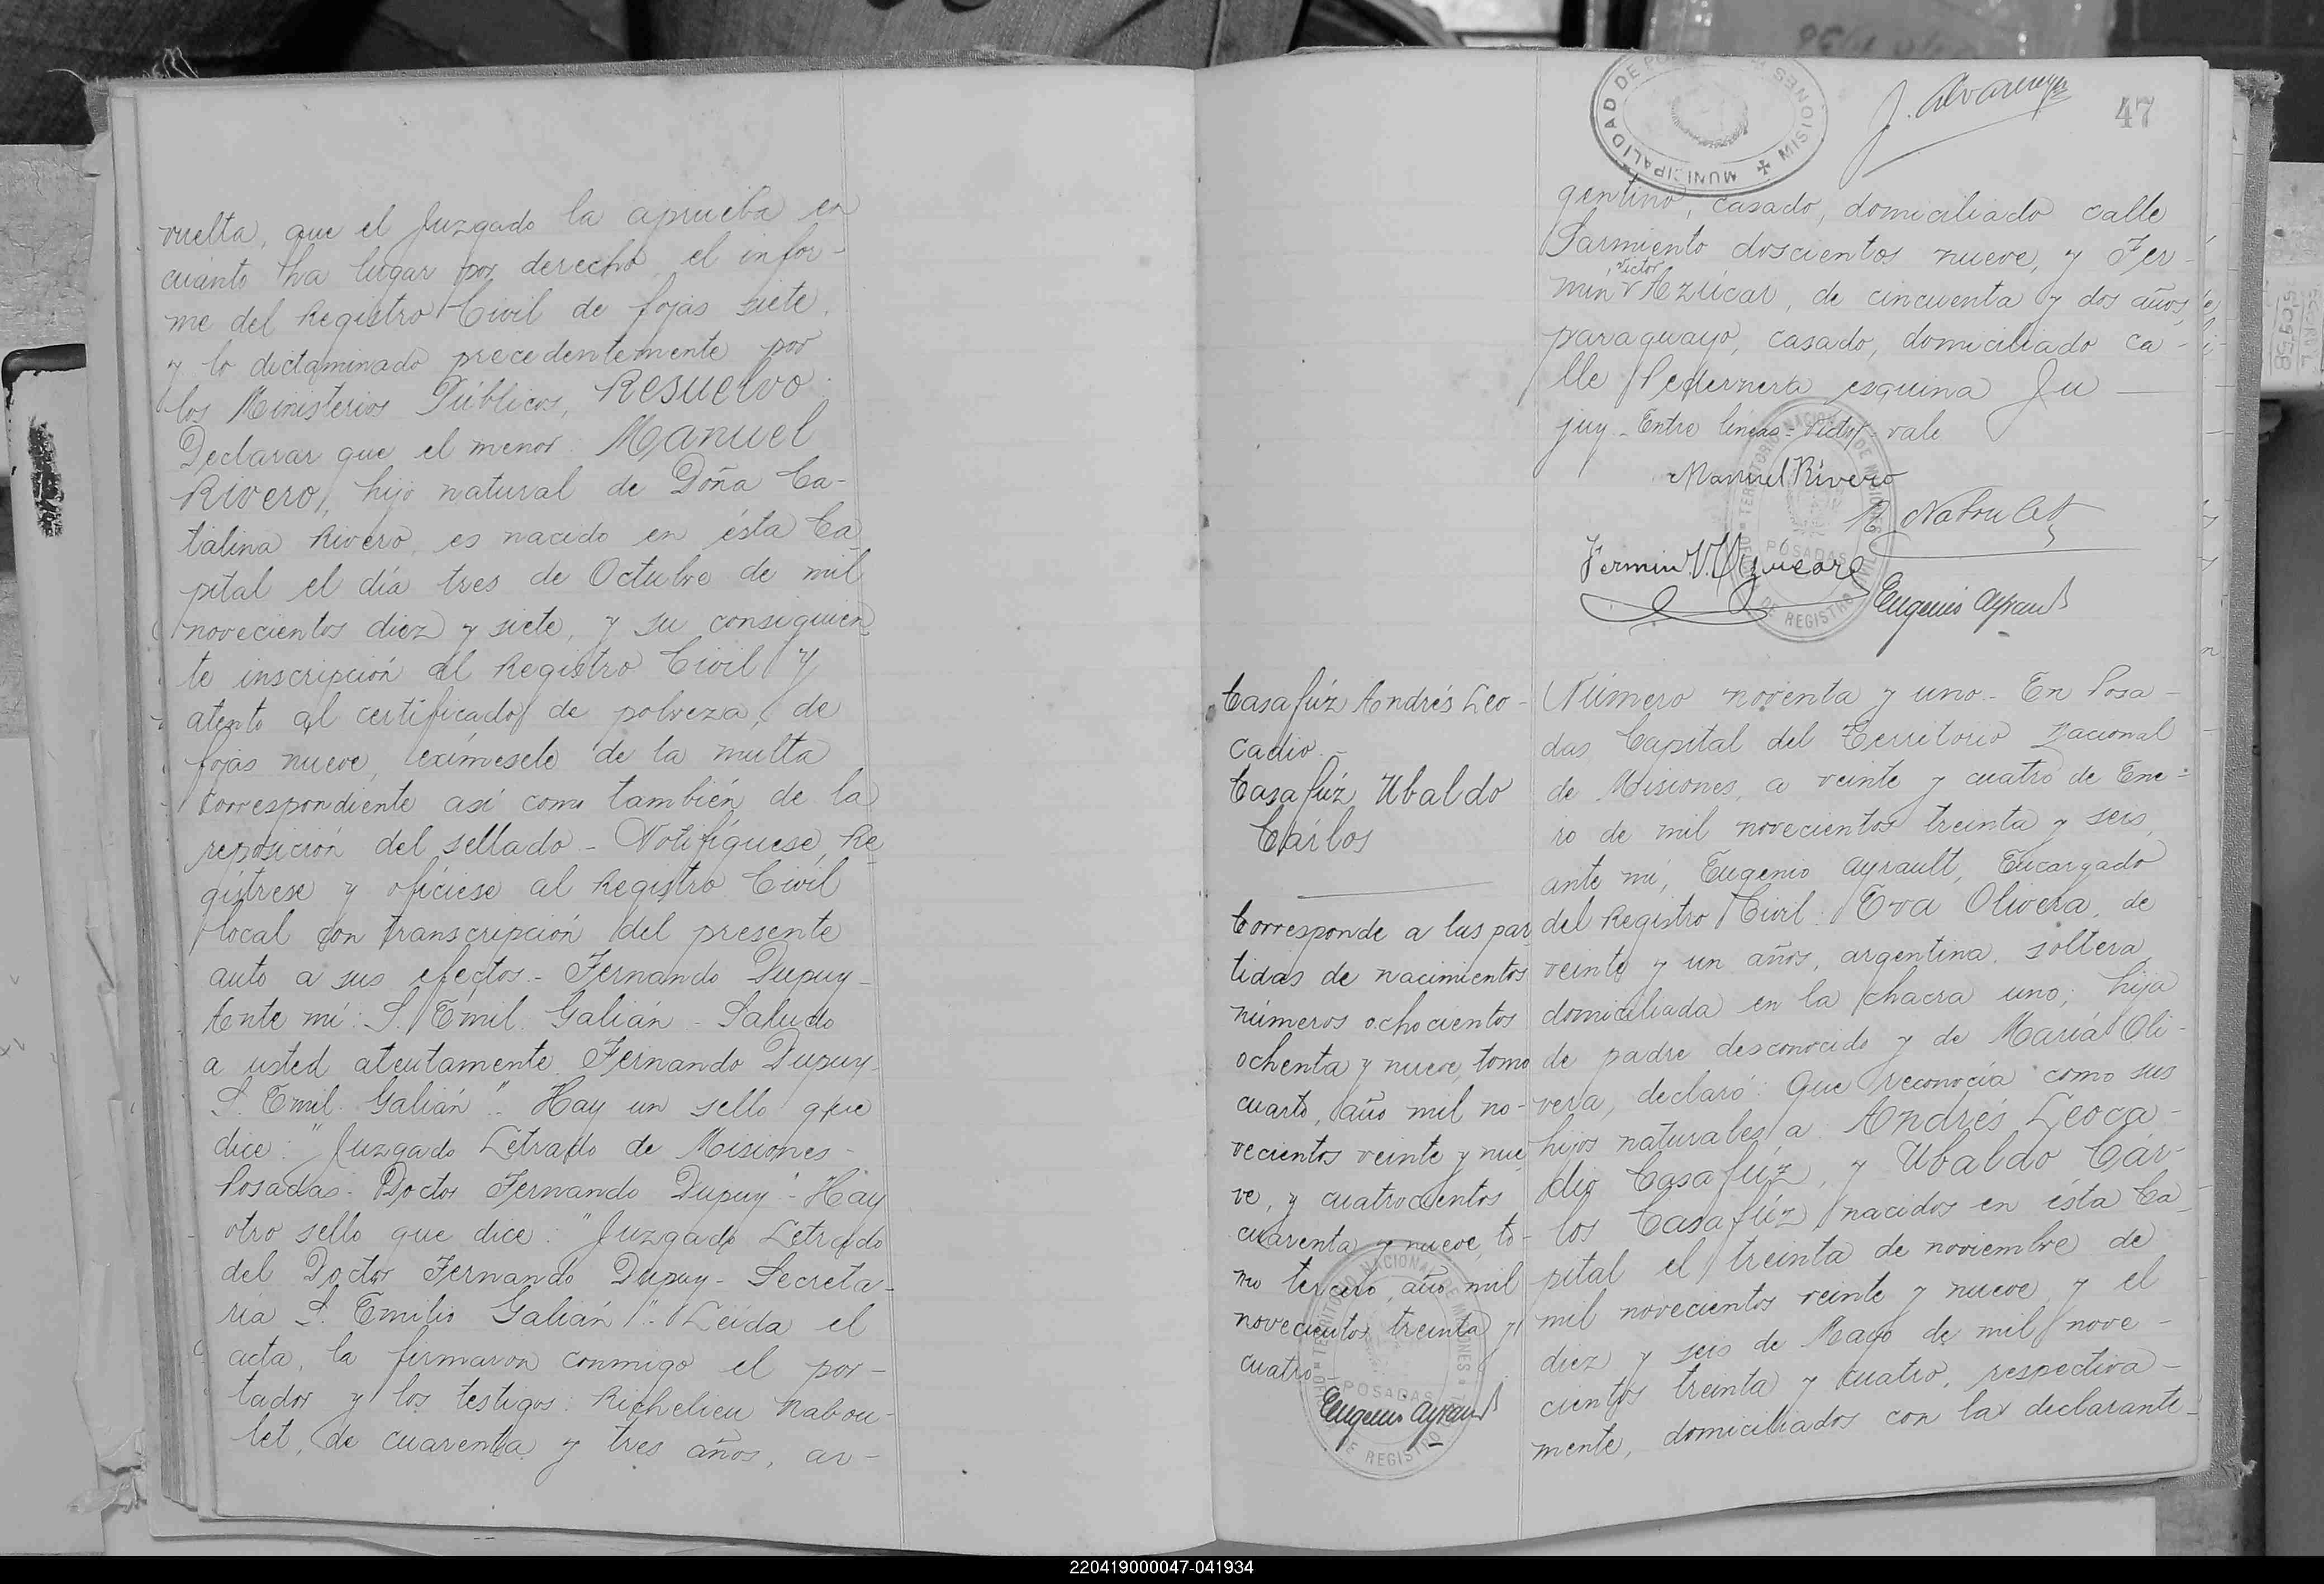 vuelta, que el Juzgado la aprueba en
cuánto ha lugar por derecho, el infor-
me del Registro Civil de fojas siete,
y lo dictaminado precedentemente por
los Ministerios Públicos, Resuelvo:
Declarar que el menor Manuel
Rivero, hijo natural de Doña Ca-
talina Rivero, es nacido en ésta Ca-
pital el día tres de Octubre de mil
novecientos diez y siete, y su consiguien-
te inscripción al Registro Civil y
atento al certificado de pobreza, de
fojas nueve, exímesele de la multa
correspondiente así como también de la
reposición del sellado - Notifíquese, Re-
gístrese y ofíciese al Registro Civil
local con transcripción del presente
auto a sus efectos - Fernando Dupuy -
Ante mí: S. Emil. Galián - Saludo
a usted atentamente. Fernando Dupuy -
S. Emil. Galián". Hay un sello que
dice: "Juzgado Letrado de Misiones -
Posadas - Doctor Fernando Dupuy" - Hay
otro sello que dice: "Juzgado Letrado
del Doctor Fernando Dupuy - Secreta-
ría S. Emilio Galián" - Leída el
acta, la firmaron conmigo el por-
tador y los testigos: Richelieu Nabou-
let, de cuarenta y tres años, ar-
MUNICIPALIDAD DE MISIONES
J. Alvarenga
47
gentino, casado, domiciliado calle
Sarmiento doscientos nueve, y Fer-
victor
min Azúcar, de cincuenta y dos años,
paraguayo, casado, domiciliado ca-
lle Pedernera esquina Ju-
juy - Entre líneas = Victor = vale
Manuel Rivero
R. Naboulet
Fermin V. Azucar
Eugenio Ayrault
TERRITORIO NACIONAL DE MISIONES
POSADAS
DE REGISTRO CIVIL
Casafúz Andrés Leo-
cadio -
Casafúz Ubaldo
Cárlos
Corresponde a las par
tidas de nacimientos
números ochocientos
ochenta y nueve, tomo
cuarto, año mil no-
vecientos veinte y nue
ve, y cuatrocientos
cuarenta y nueve, to-
mo tercero, año mil
novecientos treinta y
cuatro
Eugenio Ayrault
TERRITORIO NACIONAL DE MISIONES
POSADAS
DE REGISTRO
Número noventa y uno - En Posa-
das Capital del Territorio Nacional
de Misiones, a veinte y cuatro de Ene-
ro de mil novecientos treinta y seis,
ante mí, Eugenio Ayrault, Encargado
del Registro Civil: Eva Olivera, de
veinte y un años, argentina, soltera,
domiciliada en la chacra uno; hija
de padre desconocido y de María Oli-
vera, declaró: Que reconocía como sus
hijos naturales a Andrés Leoca-
dio Casafúz, y Ubaldo Cár-
los Casafúz, nacidos en ésta Ca-
pital el treinta de noviembre de
mil novecientos veinte y nueve y el
diez y seis de Mayo de mil nove-
cientos treinta y cuatro, respectiva-
mente, domiciliados con la declarante -
220419000047-041934